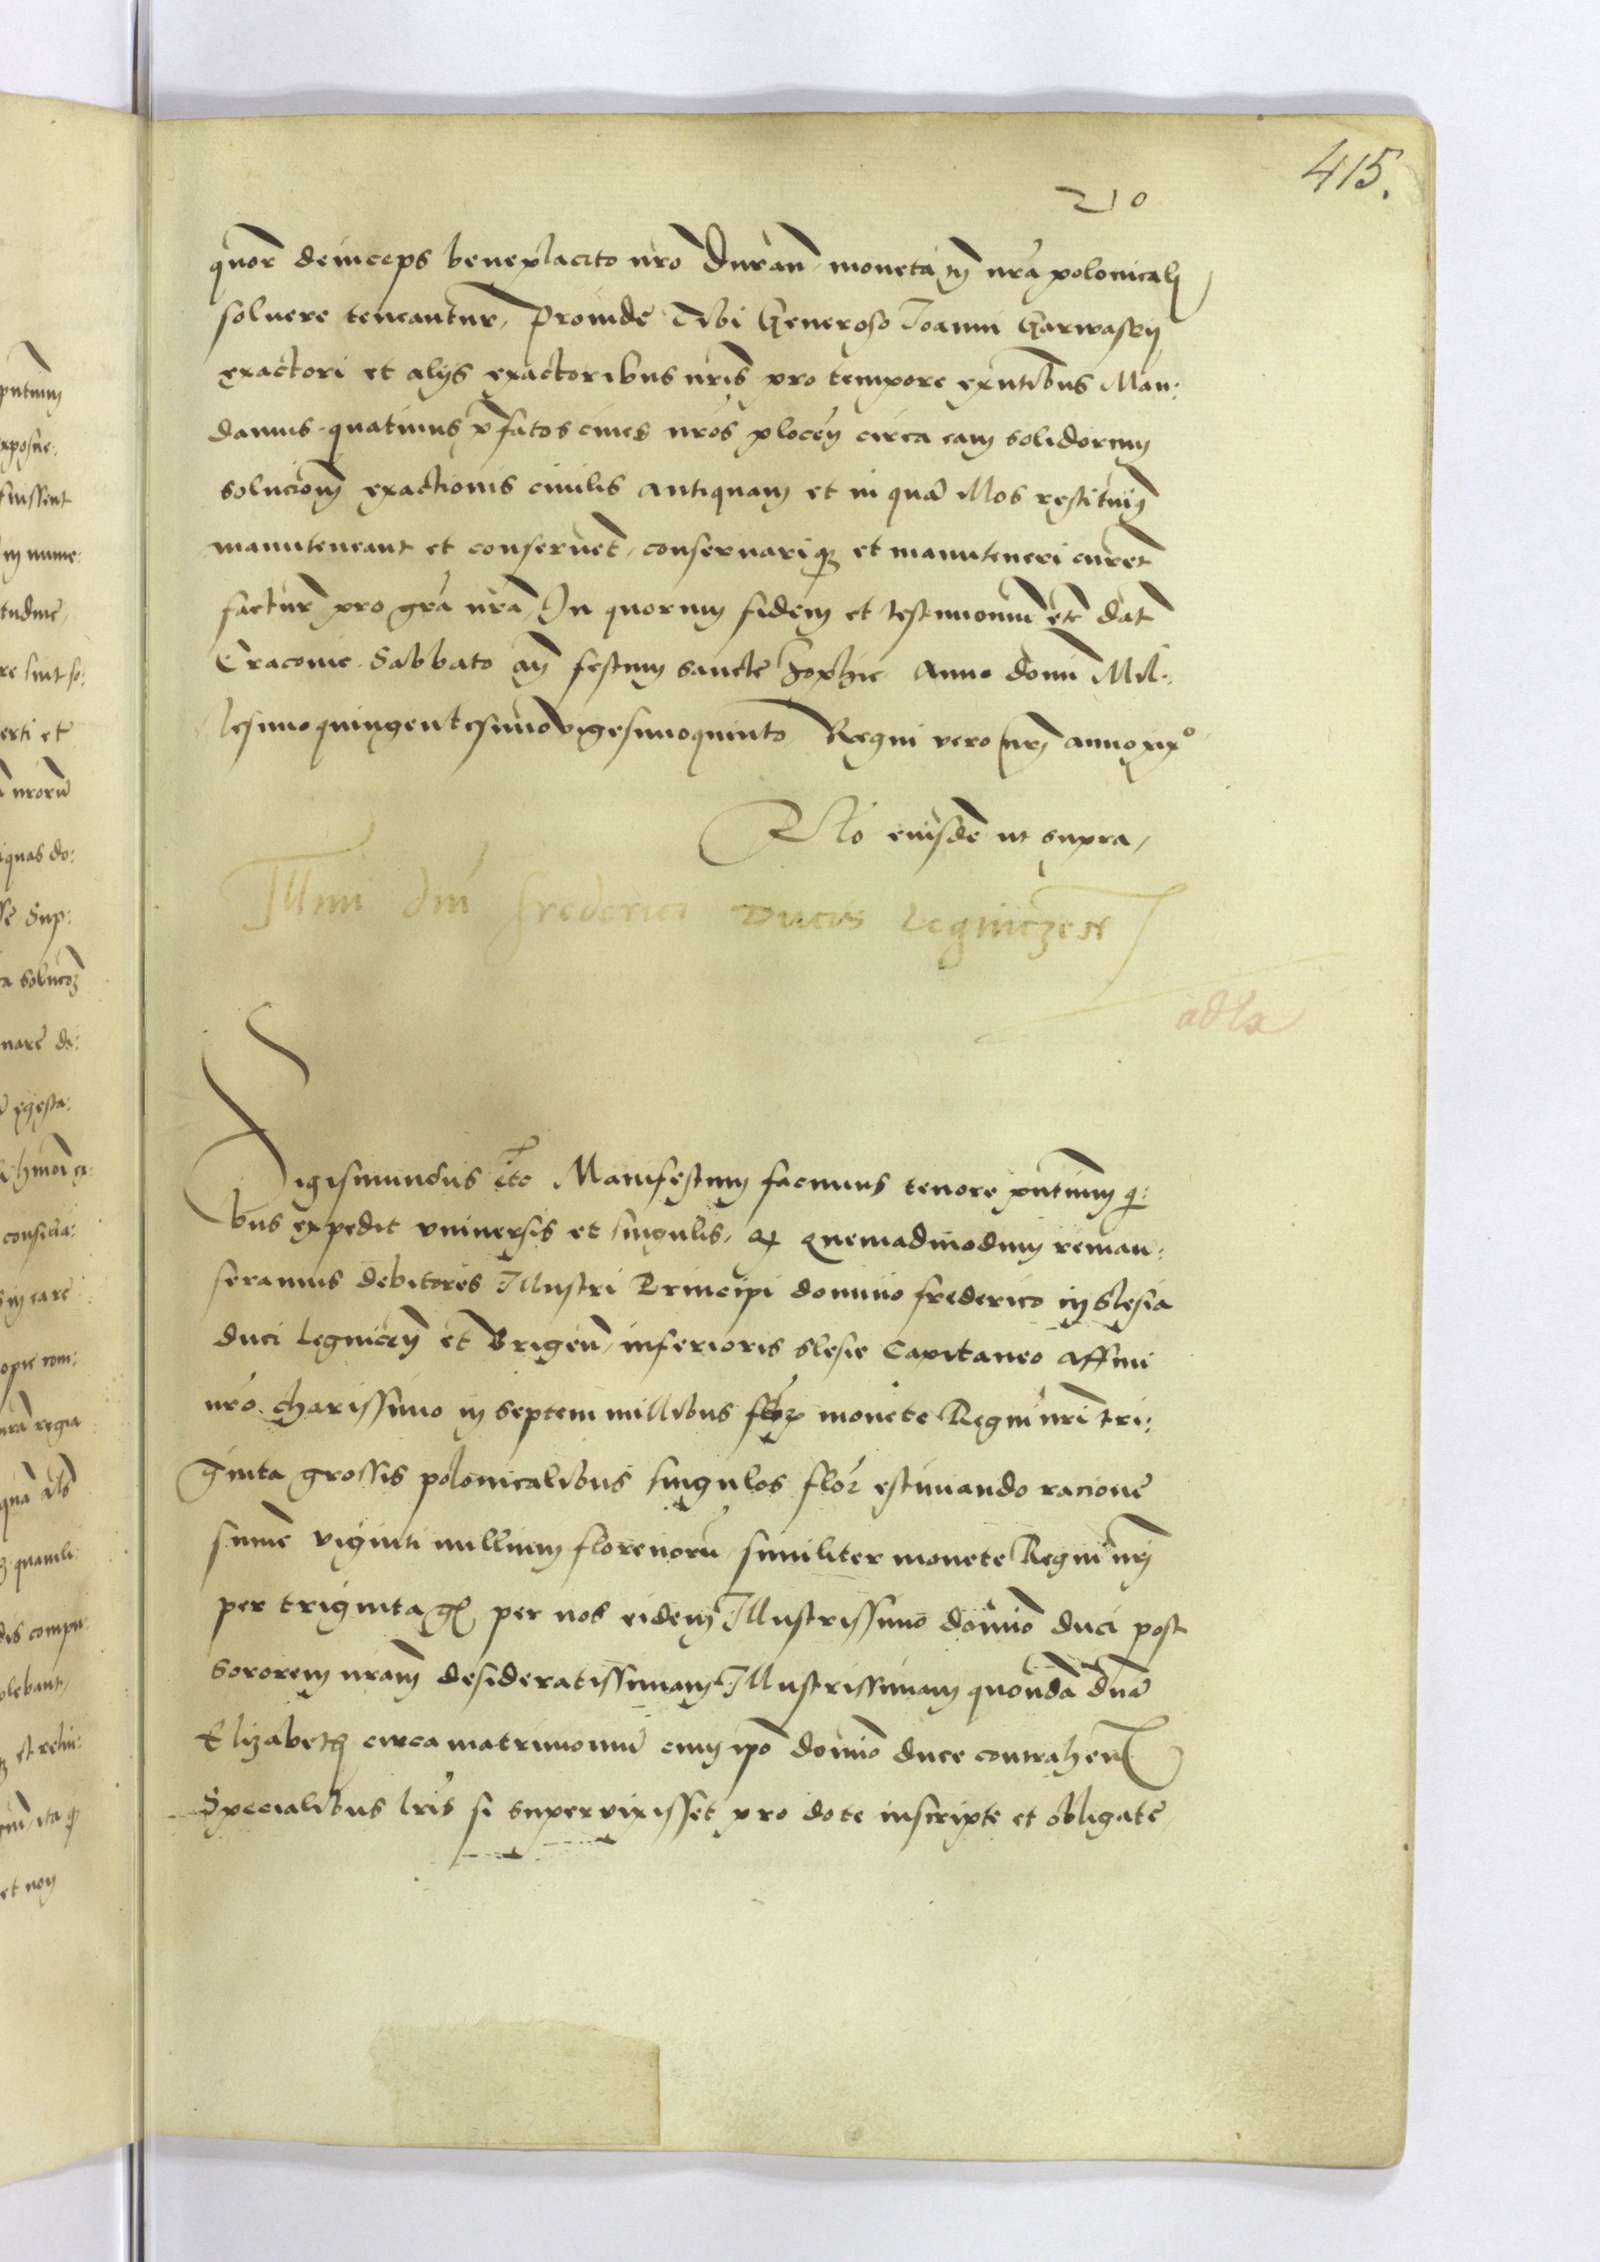 415.
210
quor deinceps beneplacito nro Duran moneta in nra polonicali
soluere teneantur, Proinde Tibi Generoso Joanni Garwasky
exactori et alijs exactoribus nris pro tempore exntibus Man:
damus quatinus pfatos ciues nros plocen circa eam solidorum
solucionem exactionis ciuilis antiquam et in qua illos restituim
manuteneant et conseruet, conseruariq et manuteneri curet
factur pro gra nra, In quorum fidem et testimonium etc dat
Cracouie Sabbato an festum sancte Zophie Anno domi Mil:
lesimo quingentesimo vigesimo quinto Regni vero nri anno xix°
Rlo eiusde ut supra,
Illmi dni frederici Ducis Legniczen
Sigismundus etc Manifestum facimus tenore pntium q:
bus expedit vniuersis et singulis, q quemadmodum reman:
seramus debitores Illustri Principi domino frederico in Slesia
duci Legnicen et Brigen, inferioris Slesie Capitaneo affini
nro charissimo in septem millibus flor monete Regni nri tri:
ginta grossis polonicalibus singulos flor estimando racione
summe viginti millium florenoru similiter monete Regni nri
per triginta gr per nos eidem Illustrissimo domino duci post
sororem nram desideratissimam Illustrissimam quonda dna
Elizabeth circa matrimoniu cum ipo domino duce contrahen
Specialibus lris si supervixisset pro dote inscripte et obligate